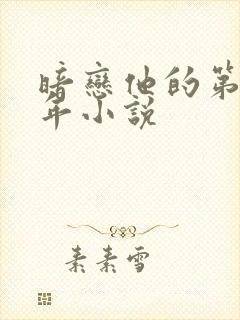 暗戀他的第
年小說
素素雪